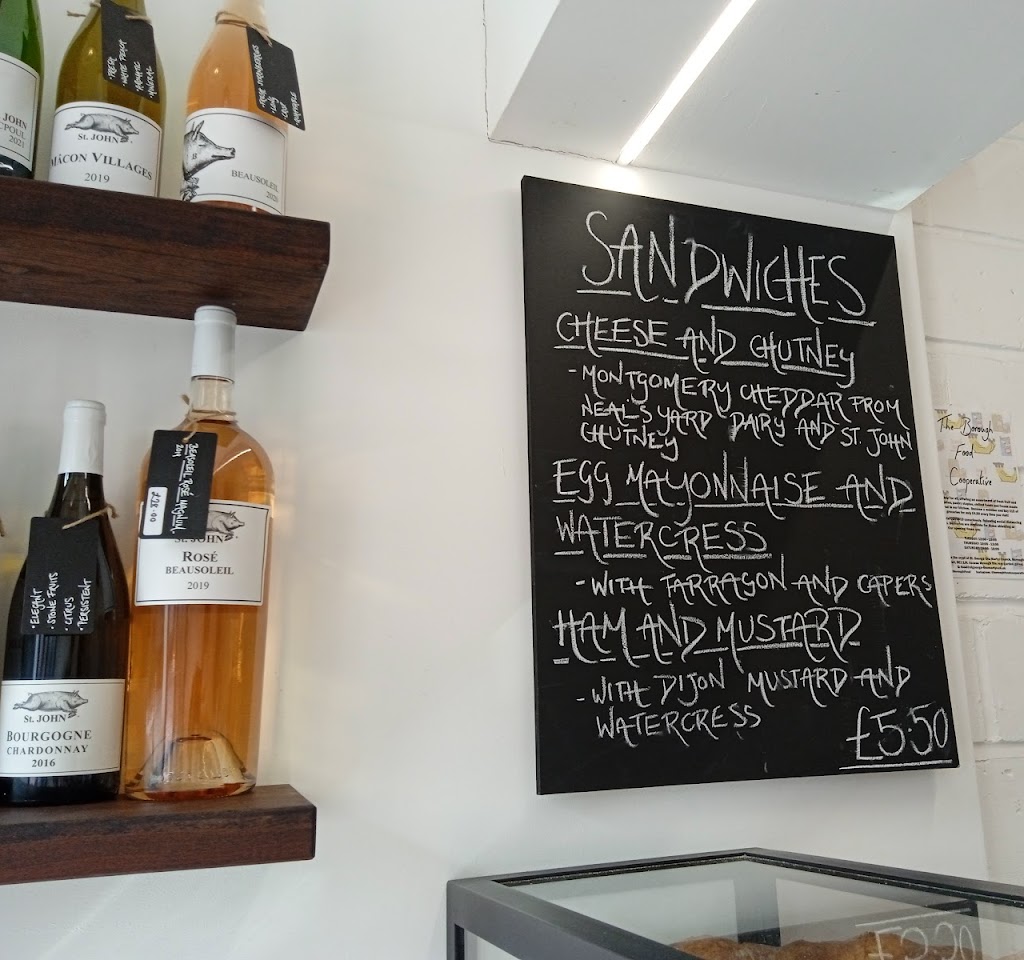 JOHN
CPOUL
2021
St. JOHN
MÂCON VILLAGES
2019
• FRESH
• WHITE PEACH
• AROMATIC
• MINERAL
BEAUSOLEIL
2020
ST. JOHN
ROSÉ
BEAUSOLEIL
2019
BEAUSOLEIL ROSÉ MAGNUM
2019
£28.00
• ELEGANT
• STONE FRUITS
• CITRUS
• PERSISTENT
St. JOHN
BOURGOGNE
CHARDONNAY
2016
SANDWICHES
CHEESE AND CHUTNEY
- MONTGOMERY CHEDDAR FROM
NEAL'S YARD DAIRY AND ST. JOHN
CHUTNEY
EGG MAYONNAISE AND
WATERCRESS
- WITH TARRAGON AND CAPERS
HAM AND MUSTARD
- WITH DIJON MUSTARD AND
WATERCRESS
£5.50
The Borough
Food
Cooperative